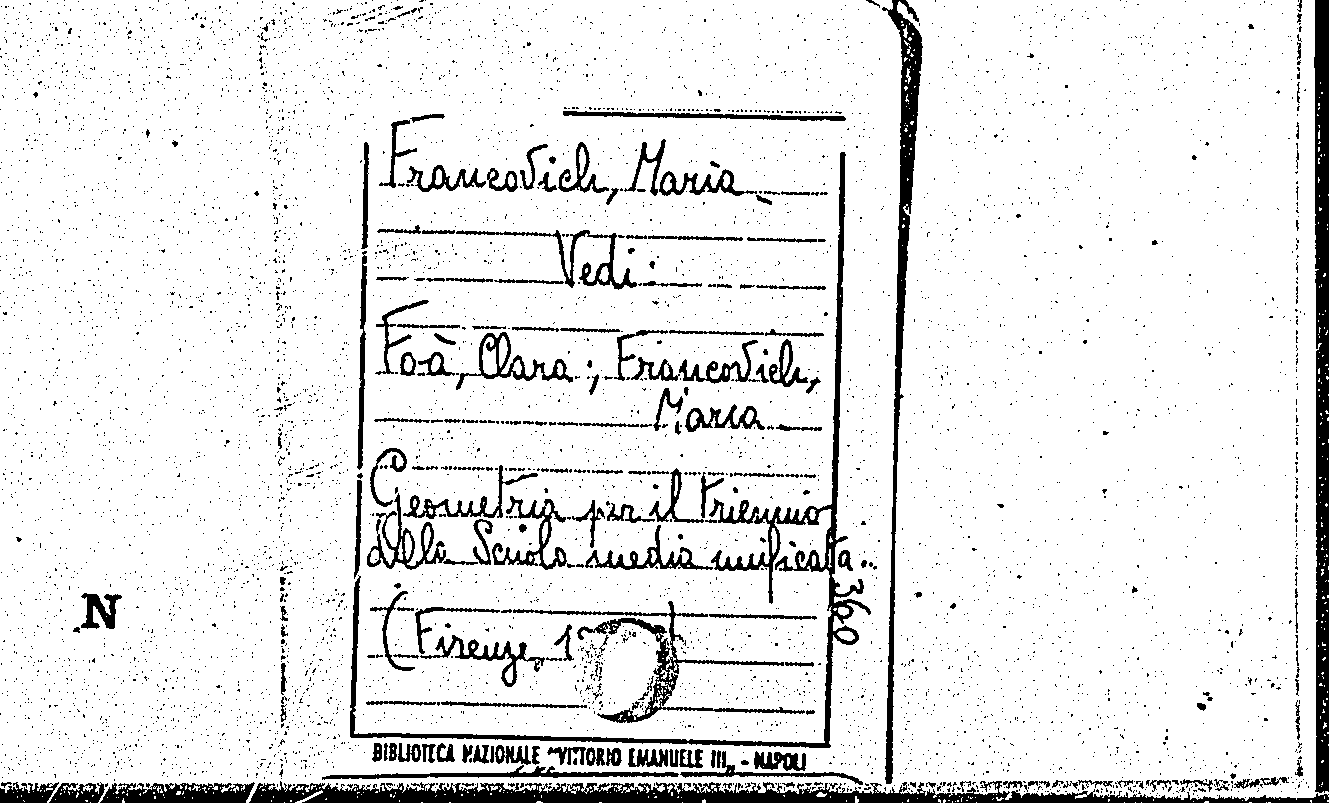 Francovich, Maria
Vedi:
Foà, Clara; Francovich,
Maria
Geometria per il triennio
della Scuola media unificata..
360
(Firenze, 1
N
BIBLIOTECA NAZIONALE "VITTORIO EMANUELE III" - NAPOLI